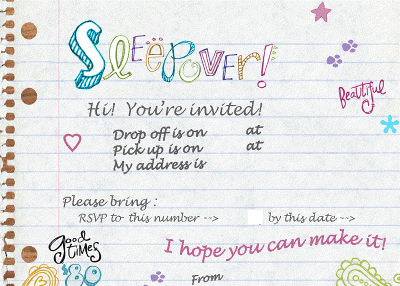 Sleepover!
Beautiful
Hi! You're invited!
Drop off is on at
Pick up is on at
My address is
Please bring :
RSVP to this number --> by this date -->
good TIMES
I hope you can make it!
'80
From